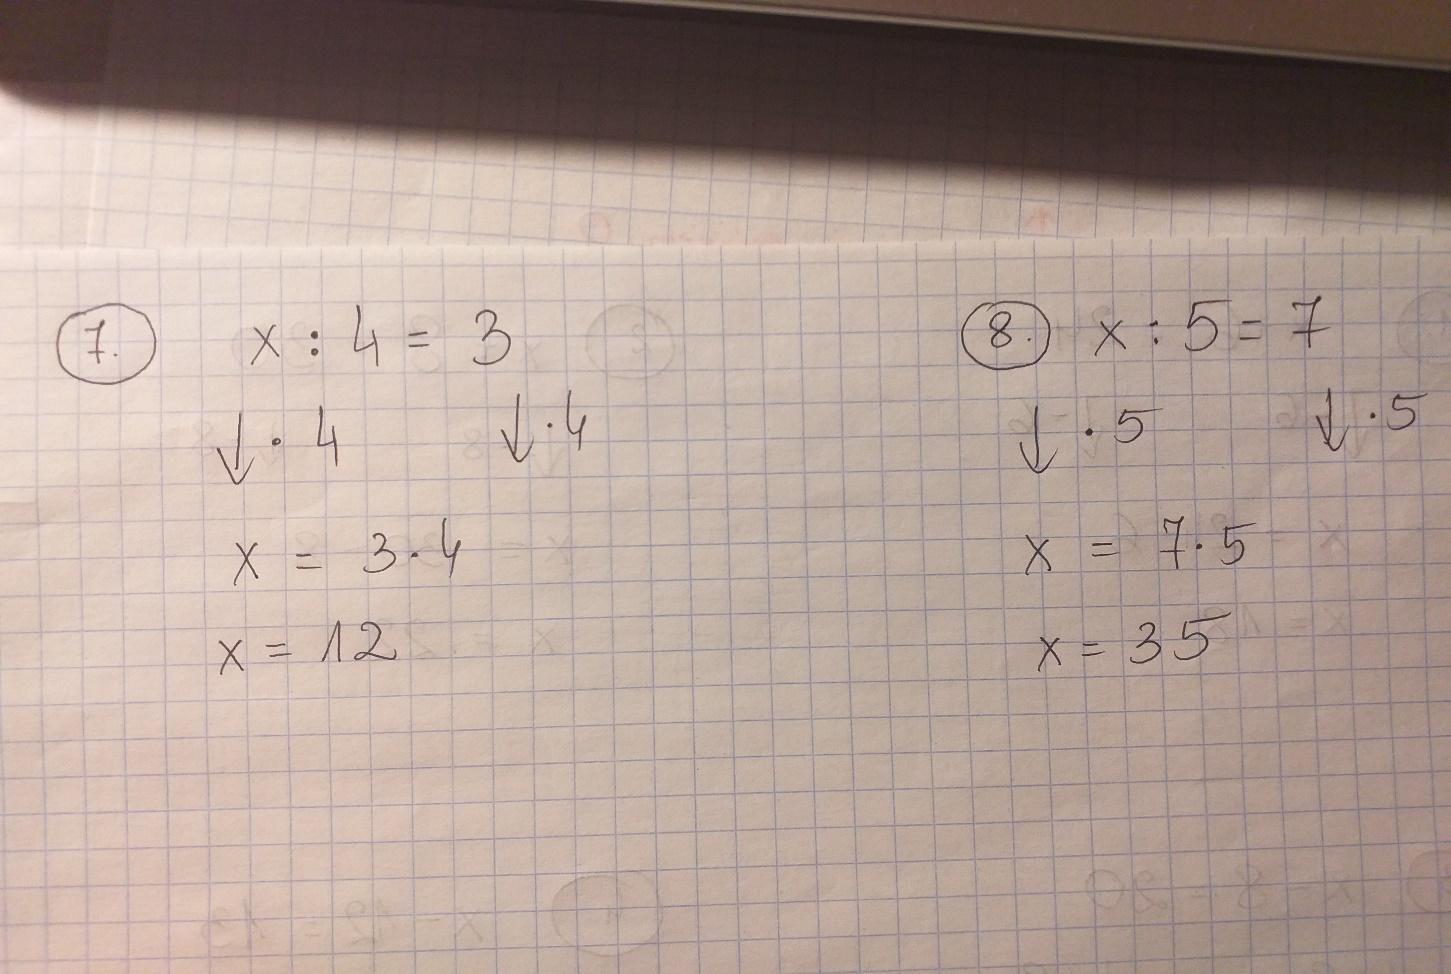 7. x : 4 = 3
↓ · 4 ↓ · 4
x = 3 · 4
x = 12
8. x : 5 = 7
↓ · 5 ↓ · 5
x = 7 · 5
x = 35